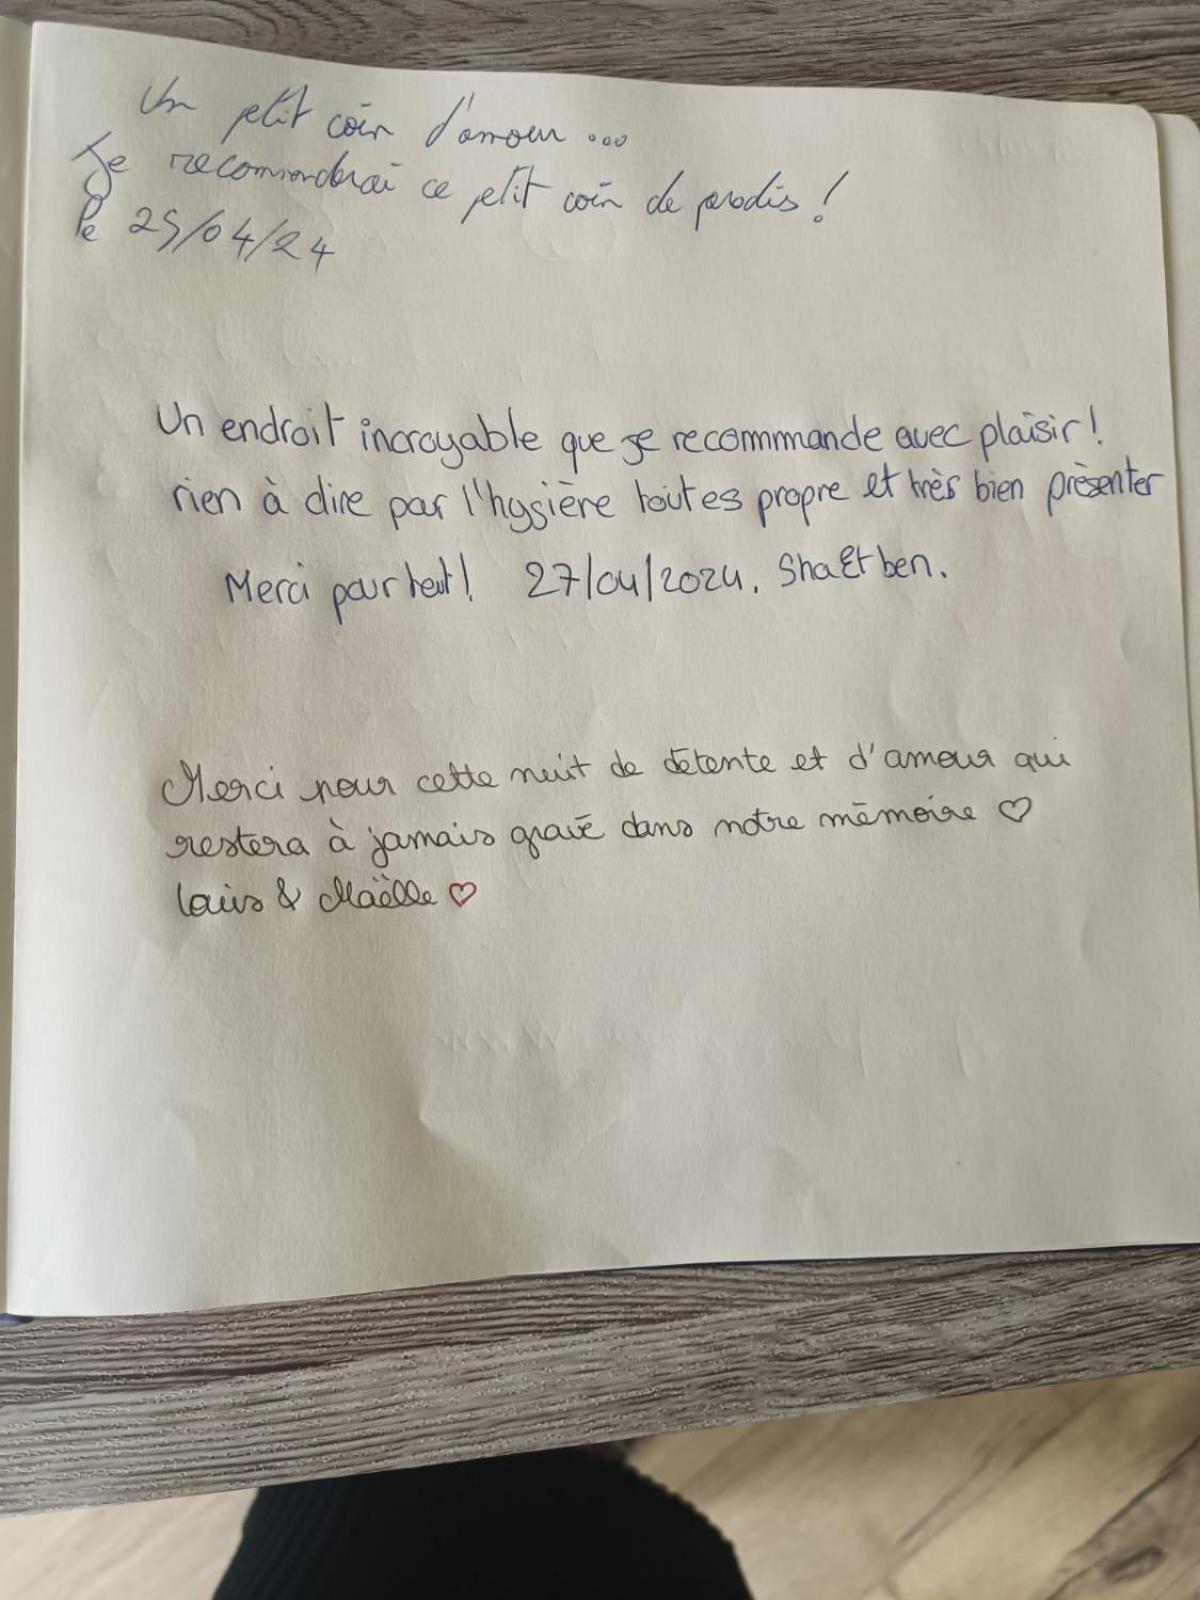 Un petit coin d'amour...
Je recommanderai ce petit coin de paradis !
le 25/04/24
Un endroit incroyable que je recommande avec plaisir !
rien à dire par l'hygière toutes propre et très bien présenter
Merci pour tout ! 27/04/2024. Sha Et ben.
Merci pour cette nuit de détente et d'amour qui
restera à jamais gravé dans notre mémoire ♡
& Maëlle ♡